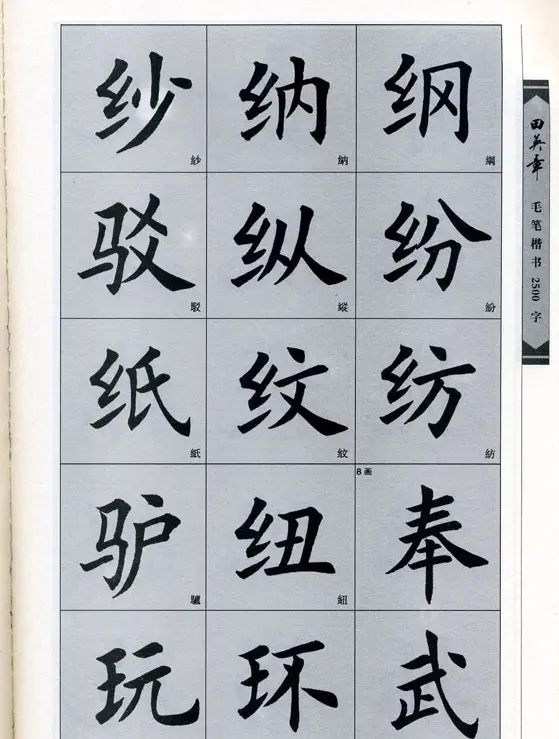 纱 纳 纲
紗 納 綱
驳 纵 纷
駁 縱 紛
纸 纹 纺
紙 紋 紡
8画
驴 纽 奉
驢 紐
玩 环 武
田英章 毛笔楷书2500字